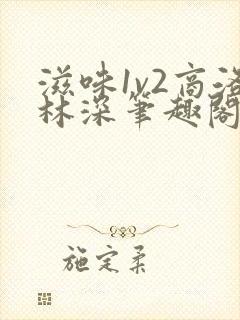 滋味1v2高洛
林深笔趣阁
施定柔